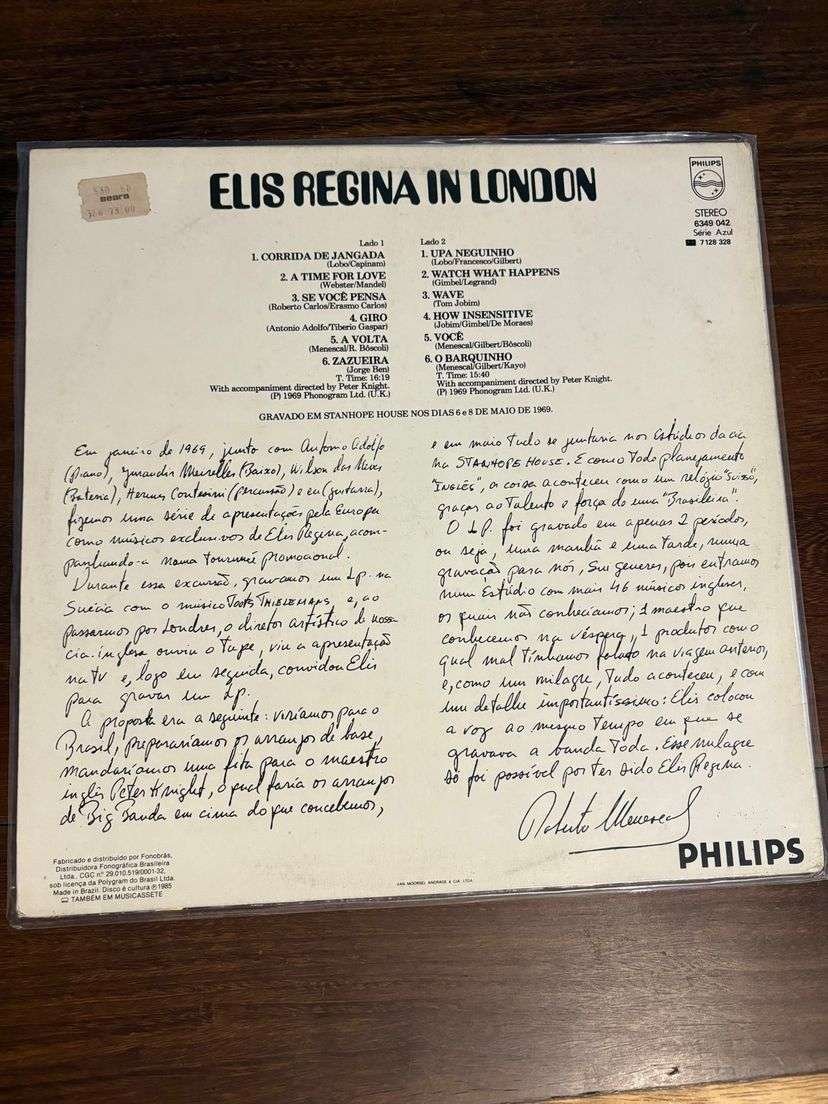 ELIS REGINA IN LONDON
sears
PHILIPS
STEREO
6349 042
Série Azul
7128 328
Lado 1
1. CORRIDA DE JANGADA
(Lobo/Capinam)
2. A TIME FOR LOVE
(Webster/Mandel)
3. SE VOCÊ PENSA
(Roberto Carlos/Erasmo Carlos)
4. GIRO
(Antonio Adolfo/Tiberio Gaspar)
5. A VOLTA
(Menescal/R. Bôscoli)
6. ZAZUEIRA
(Jorge Ben)
T. Time: 16:19
With accompaniment directed by Peter Knight.
(P) 1969 Phonogram Ltd. (U.K.)
Lado 2
1. UPA NEGUINHO
(Lobo/Francesco/Gilbert)
2. WATCH WHAT HAPPENS
(Gimbel/Legrand)
3. WAVE
(Tom Jobim)
4. HOW INSENSITIVE
(Jobim/Gimbel/De Moraes)
5. VOCÊ
(Menescal/Gilbert/Bôscoli)
6. O BARQUINHO
(Menescal/Gilbert/Kayo)
T. Time: 15:40
With accompaniment directed by Peter Knight.
(P) 1969 Phonogram Ltd. (U.K.)
GRAVADO EM STANHOPE HOUSE NOS DIAS 6 e 8 DE MAIO DE 1969.
Em janeiro de 1969, junto com Antonio Adolfo
(piano), Jurandir Meirelles (Baixo), Wilson das Neves
(Bateria), Hermes Contesini (percussão) e eu (guitarra),
fizemos uma série de apresentações pela Europa
como músicos exclusivos de Elis Regina, acom-
panhando-a numa tournnée promocional.
Durante essa excursão, gravamos um Lp. na
Suécia com o músico TOOTS THIELEMANS, e, ao
passarmos por Londres, o diretor artístico de nossa
cia. inglesa ouviu o tape, viu a apresentação
na tv e, logo em seguida, convidou Elis
para gravar um Lp.
A proposta era a seguinte: viríamos para o
Brasil, prepararíamos os arranjos de base,
mandaríamos uma fita para o maestro
inglês Peter Knight, o qual faria os arranjos
de Big Banda em cima do que concebemos,
e em maio tudo se juntaria nos Estúdios da cia
na STANHOPE HOUSE. E como todo planejamento
"INGLÊS", a coisa aconteceu como um relógio "suisso",
graças ao talento e força de uma "Brasileira".
O LP. foi gravado em apenas 2 períodos,
ou seja, uma manhã e uma tarde, numa
gravação para nós, Sui generes, pois entramos
num Estúdio com mais 46 músicos ingleses,
os quais não conhecíamos; 1 maestro que
conhecemos na véspera, 1 produtor com o
qual mal tínhamos falado na viagem anterior,
e, como um milagre, tudo aconteceu, e com
um detalhe importantíssimo: Elis colocou
a voz ao mesmo tempo em que se
gravava a banda toda. Esse milagre
só foi possível por ter sido Elis Regina.
Roberto Menescal
PHILIPS
Fabricado e distribuido por Fonobrás,
Distribuidora Fonográfica Brasileira
Ltda., CGC n.º 29.010.519/0001-32,
sob licença da Polygram do Brasil Ltda.
Made in Brazil. Disco é cultura ℗ 1985
TAMBÉM EM MUSICASSETE
VAN MOORSEL ANDRADE & CIA. LTDA.